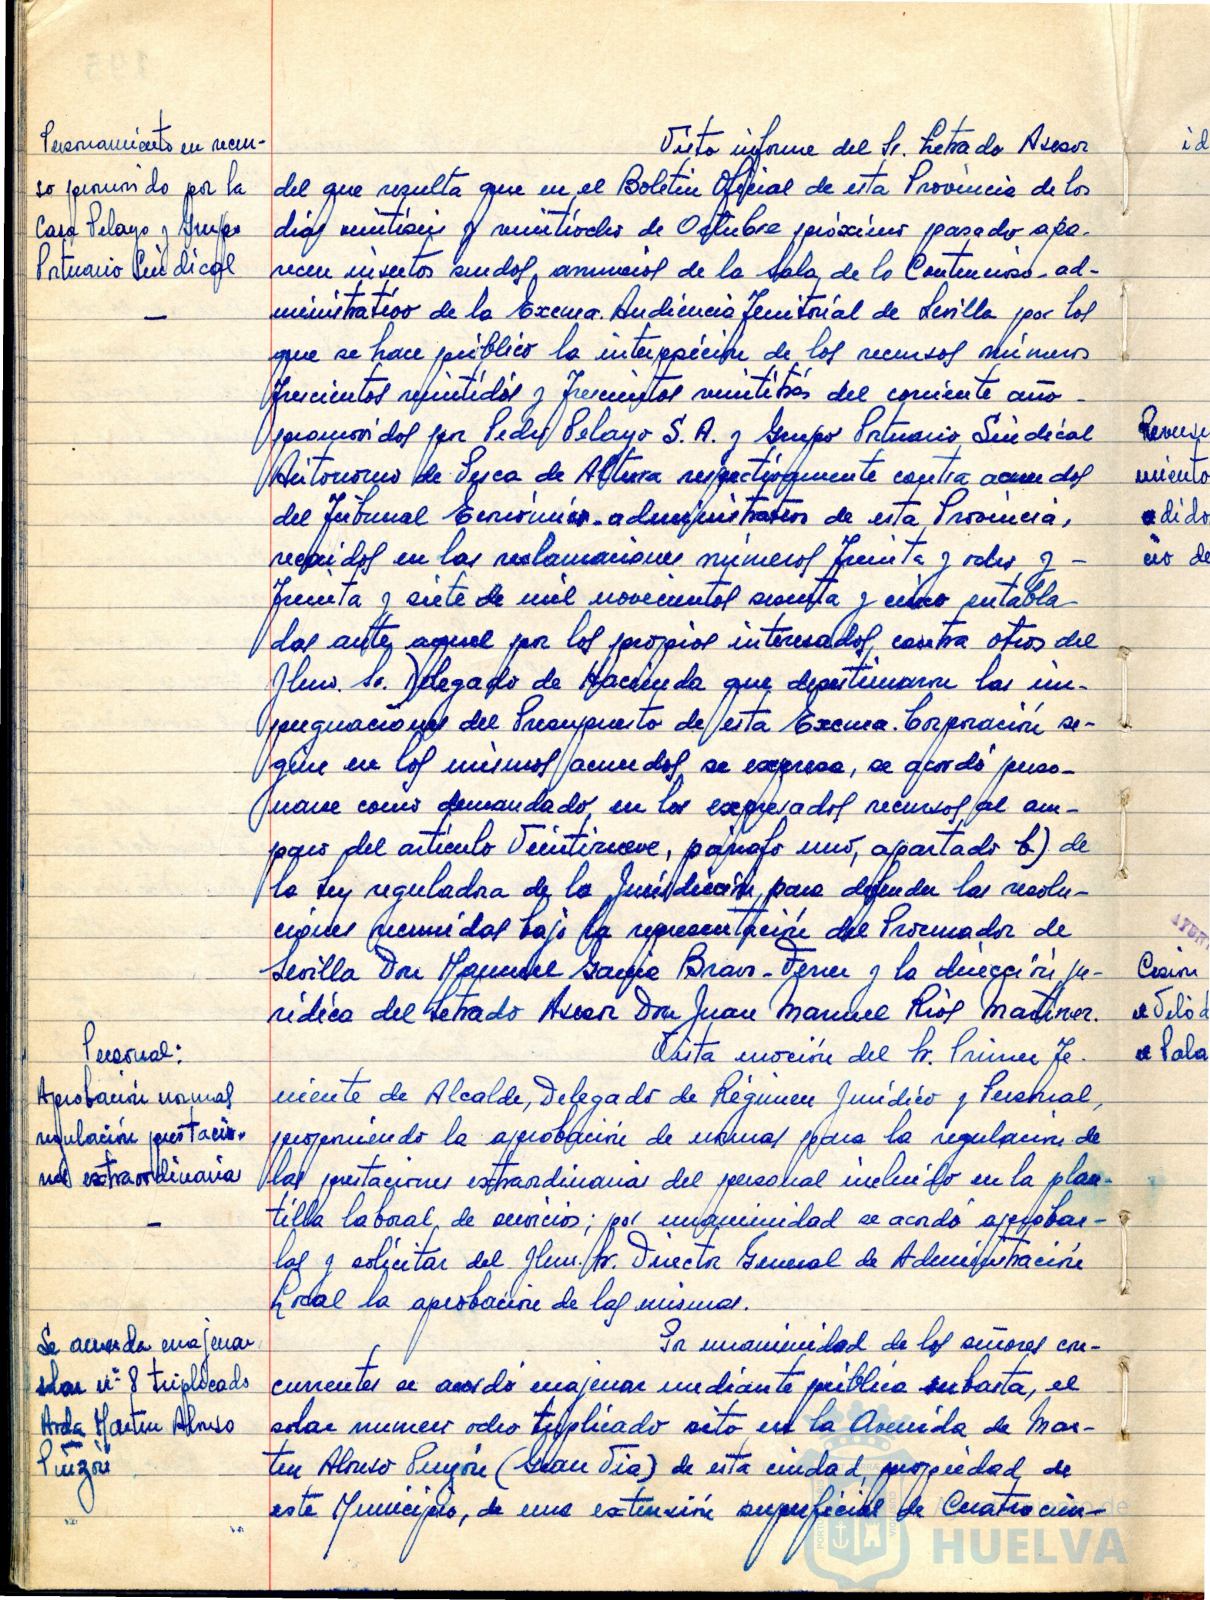 Personamiento en recur-
so promovido por la
Casa Pelayo y Grupo
Portuario Sindical
Visto informe del Sr. Letrado Asesor
del que resulta que en el Boletin Oficial de esta Provincia de los
dias veintiseis y veintiocho de Octubre próximo pasado apa-
recen insertos sendos anuncios de la Sala de lo Contencioso-ad-
ministrativo de la Excma. Audiencia Territorial de Sevilla por los
que se hace público la interposición de los recursos números
trescientos veintidós y trescientos veintitrés del corriente año
promovidos por Pedro Pelayo S.A. y Grupo Portuario Sindical
Autonomo de Pesca de Altura respectivamente contra acuerdos
del Tribunal Económico-administrativo de esta Provincia,
recaidos en las reclamaciones números treinta y ocho y -
treinta y siete de mil novecientos sesenta y cinco entabla-
das ante aquel por los propios interesados, contra otros del
Ilmo. Sr. Delegado de Hacienda que desestimaron las im-
pugnaciones del Presupuesto de esta Excma. Corporación se-
gún en los mismos acuerdos se expresa, se acordó perso-
narse como demandado en los expresados recursos al am-
paro del artículo Veintinueve, párrafo uno, apartado b) de
la Ley reguladora de la Jurisdicción para defender las resolu-
ciones recurridas bajo la representación del Procurador de
Sevilla Don Manuel Garcia Bravo-Ferrer y la dirección ju-
rídica del Letrado Asesor Don Juan Manuel Ríos Martinez.
Personal:
Aprobación normas
regulación prestacio-
nes extraordinarias
Vista moción del Sr. Primer Te-
niente de Alcalde, Delegado de Régimen Jurídico y Personal,
proponiendo la aprobación de normas para la regulación de
las prestaciones extraordinarias del personal incluido en la plan-
tilla laboral de servicios; por unanimidad se acordó aprobar-
las y solicitar del Ilmo. Sr. Director General de Administración
Local la aprobación de las mismas.
Se acuerda enajenar
solar nº 8 triplicado
Avda Martin Alonso
Pinzón
Por unanimidad de los señores con-
currentes se acordó enajenar mediante pública subasta, el
solar numero ocho triplicado sito en la Avenida de Mar-
tin Alonso Pinzón (Gran Via) de esta ciudad, propiedad de
este Municipio, de una extensión superficial de Cuatrocien-
id
miento
dido
cio de
Cesion
Ayuntamiento de
HUELVA